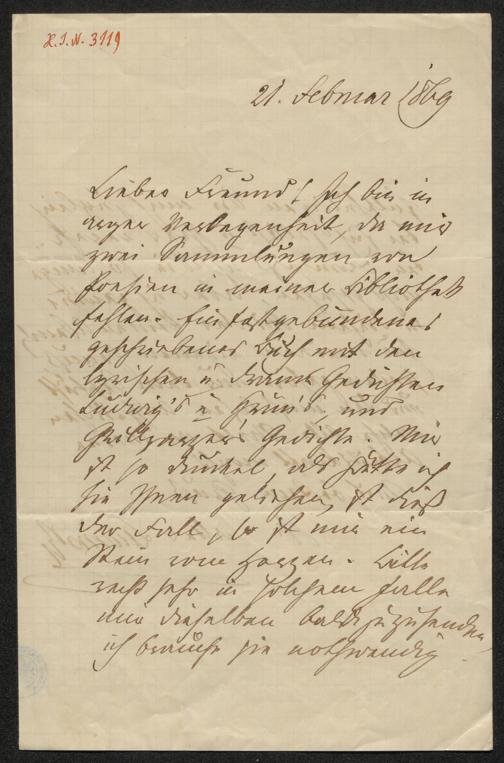 H.I.N. 3119
21. Februar 1869
Lieber Freund! Ich bin in
arger Verlegenheit, da mir
zwei Sammlungen von
Poesien in meiner Bibliothek
fehlen. Ein festgebundenes
geschriebenes Buch mit den
lyrischen u Gedichten
Ludwig's u Grün's, und
Grillparzer's Gedichte. Mir
ist so dunkel, als hätte ich
sie Ihnen geliehen, ist dieß
der Fall, so ist mir ein
Stein vom Herzen. Bitte
recht sehr in solchem Falle
mir dieselben bald zuzusenden,
ich brauche sie nothwendig